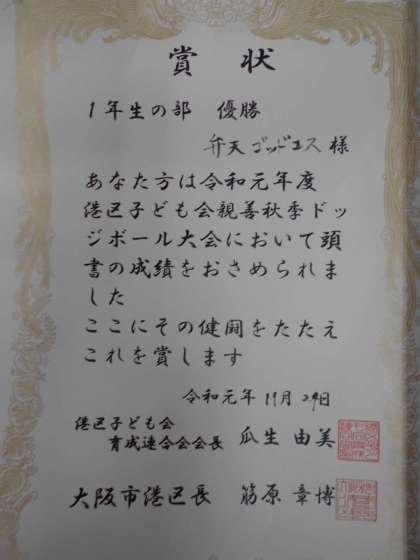 賞状
1年生の部 優勝
弁天ゴッドエス 様
あなた方は令和元年度
港区子ども会親善秋季ドッ
ジボール大会において頭
書の成績をおさめられま
した
ここにその健闘をたたえ
これを賞します
令和元年 11月 24日
港区子ども会
育成連合会会長 瓜生 由美
大阪市港区長 筋原 章博